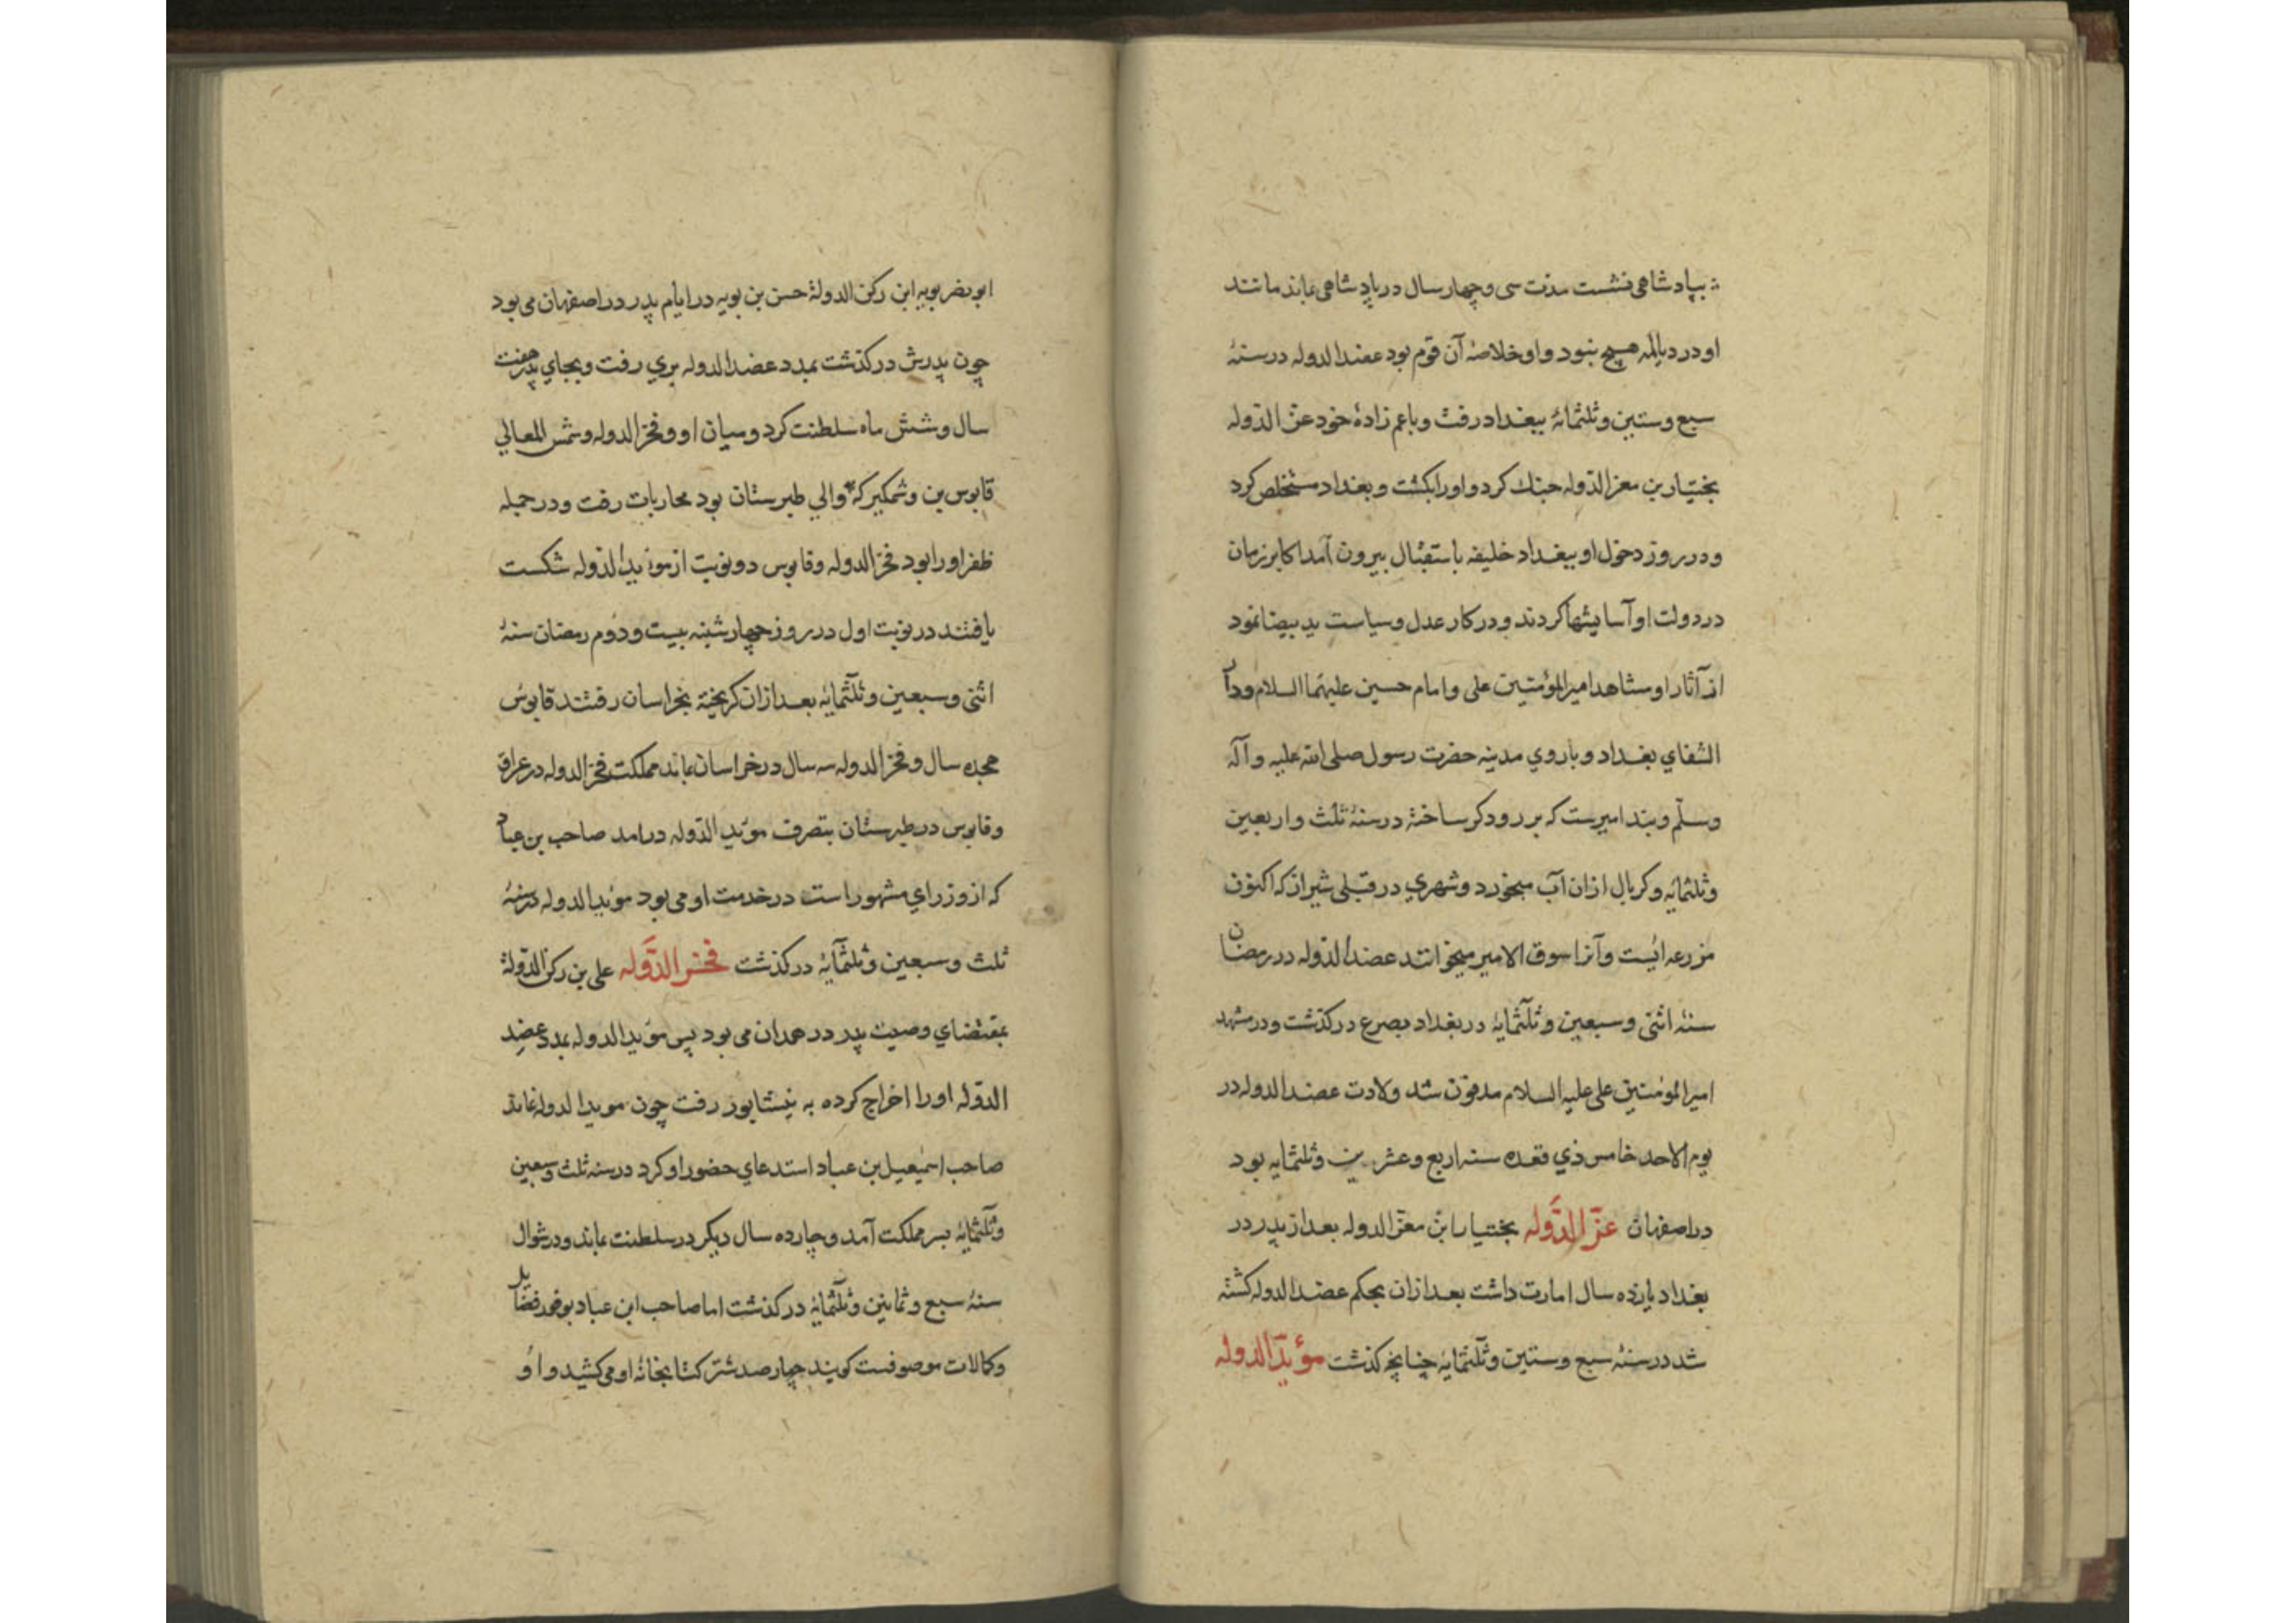 بپادشاهی نشست مدت سی و چهار سال در پادشاهی بماند مانند
او در دیالمه هیچ نبود و او خلاصهٔ آن قوم بود عضد الدوله در سنهٔ
سبع و ستین و ثلثمائه ببغداد رفت و با عم زادهٔ خود عز الدوله
بختیار بن معز الدوله جنک کرد و او را بکشت و بغداد مستخلص کرد
و در روز دخول او ببغداد خلیفه باستقبال بیرون آمد اکابر زمان
در دولت او آسایشها کردند و در کار عدل و سیاست ید بیضا نمود
از آثار او مشاهد امیر المؤمنین علی و امام حسین علیهما السلام و دار
الشفای بغداد و باروی مدینه حضرت رسول صلی الله علیه و آله
وسلم و بند امیرست که بر رود کر ساخته در سنهٔ ثلث و اربعین
وثلثمائه و کربال ازان آب میخورد و شهری در قبلی شیراز که اکنون
مزرعه ایست و آنرا سوق الامیر میخوانند عضد الدوله در رمضان
سنهٔ اثنی و سبعین و ثلثمایهٔ در بغداد بصرع درکذشت و در مشهد
امیر المومنین علی علیه السلام مدفون شد ولادت عضد الدوله در
یوم الاحد خامس ذی قعده سنه اربع و عشرین و ثلثمایه بود
در اصفهان عز الدوله بختیار ابن معز الدوله بعد از پدر در
بغداد یازده سال امارت داشت بعد ازان بحکم عضد الدوله کشته
شد در سنهٔ سبع و ستین و ثلثمایه چنانچه کذشت مؤید الدوله
ابو نصر بویه ابن رکن الدولهٔ حسن بن بویه در ایام پدر در اصفهان می بود
چون پدرش درکذشت بمدد عضد الدوله بری رفت و بجای پدر هفت
سال و شش ماه سلطنت کرد و میان او و فخر الدوله و شمس المعالی
قابوس بن وشمکیر که والی طبرستان بود محاربات رفت و در جمله
ظفر او را بود فخر الدوله و قابوس دو نوبت از موید الدوله شکست
یافتند در نوبت اول در روز چهارشنبه بیست و دوم رمضان سنهٔ
اثنی و سبعین و ثلثمایهٔ بعد ازان کریخته بخراسان رفتند قابوس
هجده سال و فخر الدوله سه سال در خراسان بماند مملکت فخر الدوله در عراق
وقابوس در طبرستان بتصرف موید الدوله درامد صاحب بن عباد
که از وزرای مشهور است در خدمت او می بود موید الدوله در سنهٔ
ثلث و سبعین و ثلثمآیهٔ درکذشت فخر الدوله علی بن رکن الدولهٔ
بمقتضای وصیت پدر در همدان می بود پس موید الدوله بمدد عضد
الدوله او را اخراج کرده به نیشابور رفت چون موید الدوله نماند
صاحب اسمعیل بن عباد استدعای حضور او کرد در سنه ثلث و سبعین
وثلثمایهٔ بسر مملکت آمد و چارده سال دیکر در سلطنت بماند و در شوال
سنهٔ سبع و ثمانین و ثلثمایهٔ درکذشت اما صاحب ابن عباد بوفور فضایل
وکمالات موصوفست کویند چهار صد شتر کتابخانهٔ او می کشید و او